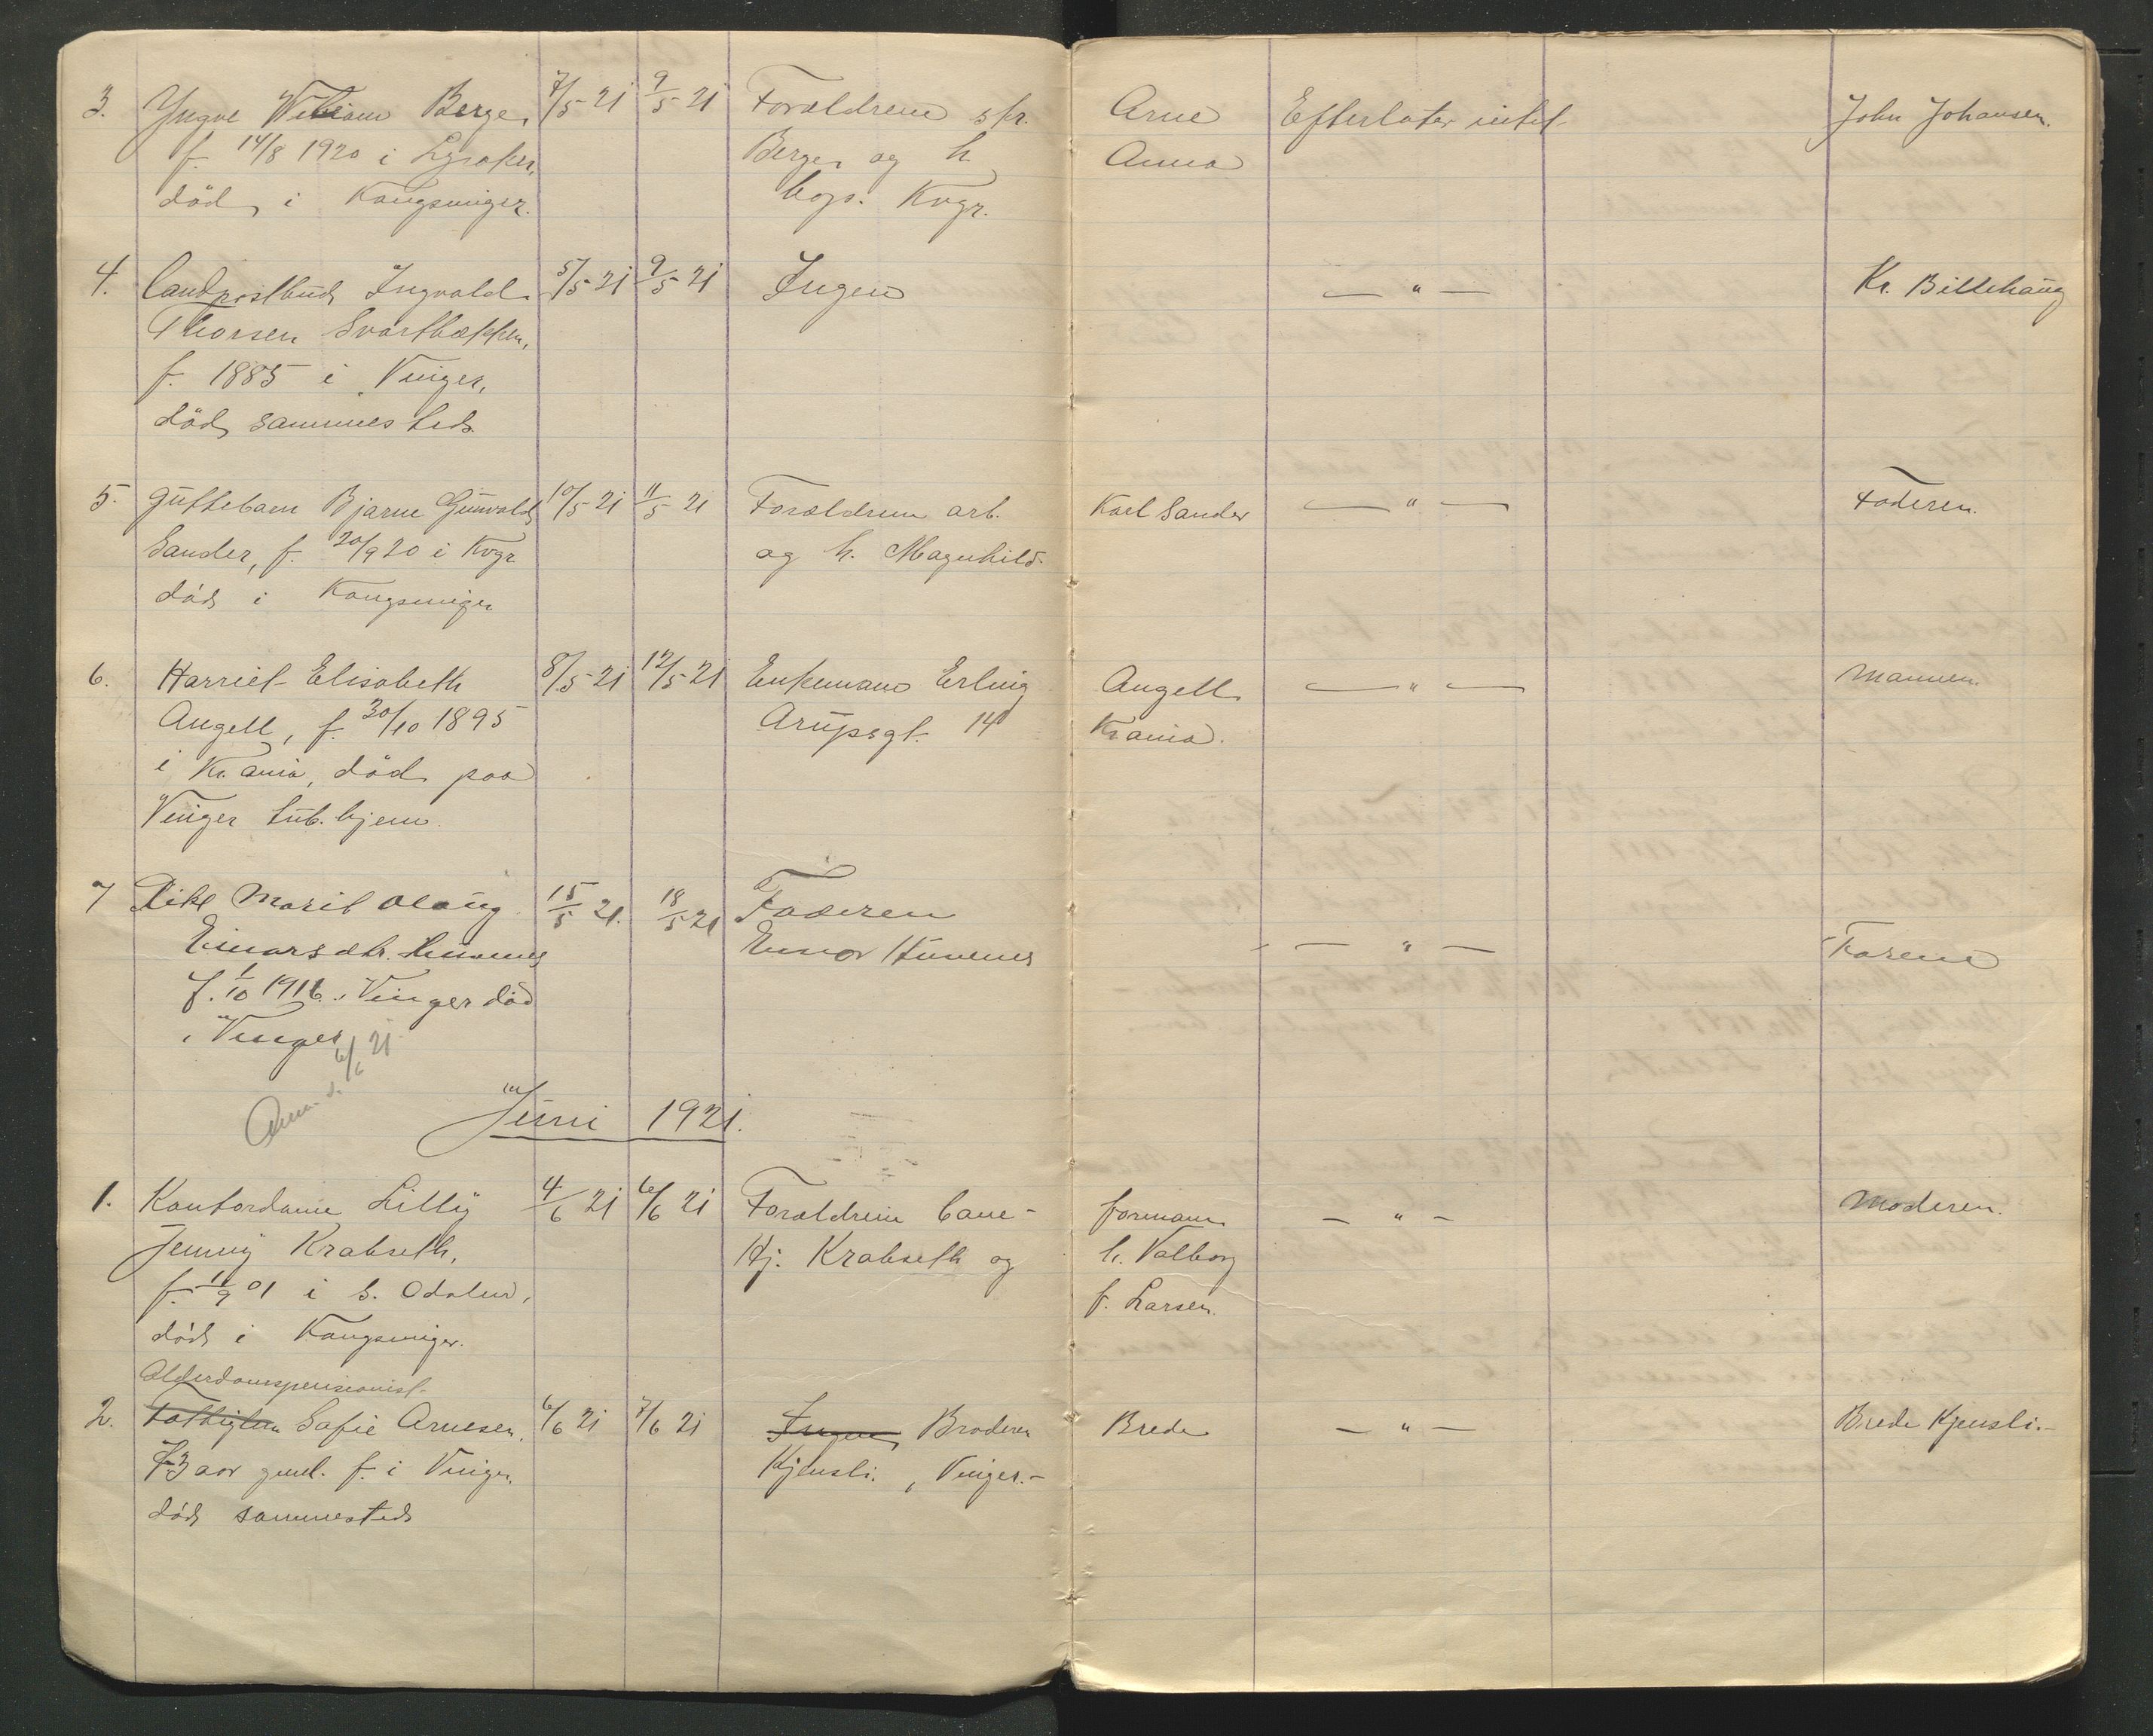 3. Yngve William Berger 7/5 21 9/5 21 Forældrene skr. Arne Efterlater intet John Johansen.
f 14/8 1920 i Lysaker, Berger og h Anna
död i Kongsvinger. bogs. Kvgr.
4. Landpostbud Ingvald 5/5 21 9/5 21 Ingen — " — Kr. Billehaug
Thorsen Svartbækken,
f. 1885 i Vinger,
död sammesteds
5. Guttebarn Bjarne Gunvald 10/5 21 11/5 21 Forældrene arb. Karl Sander — " — Faderen.
Sander, f. 20/9 20 i Kvgr og h. Magnhild
död i Kongsvinger
6. Harriet Elisabeth 8/5 21 12/5 21 Enkemand Erling Angell — " — Mannen.
Angell, f. 30/10 1895 Arupsgt. 14 Kr.ania.
i Kr.ania, död paa
Vinger tub. hjem.
7 Pike Marit Olaug 15/5 21. 18/5 21 Faderen
Einarsdtr. Hunnes Einar Hunnes — " — Faren
f. 1/10 1916 i Vinger död
i Vinger
Anm. d. 6/6 21
Juni 1921.
1. Kontordame Lilly 4/6 21 6/6 21 Forældrene bane- formann — " — Moderen.
Jenny Krabseth, Hj. Krabseth og h. Valborg
f. 11/9 01 i S. Odalen, f. Larsen.
död i Kongsvinger.
Alderdomspensionist
2. Fattiglem Sofie Arnesen, 6/6 21 7/6 21 Ingen Broderen Brede — " — Brede Kjensli.-
73 aar gml. f. i Vinger. Kjensli, Vinger.-
död sammesteds